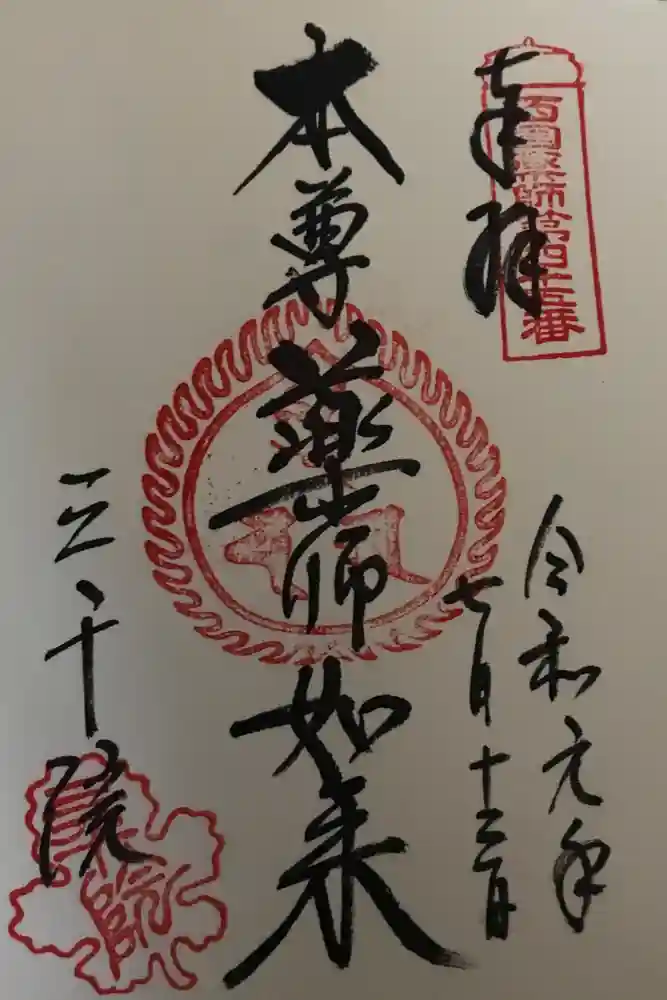 奉拝
西国薬師第四十五番
令和元年
七月十二日
本尊薬師如来
三千院